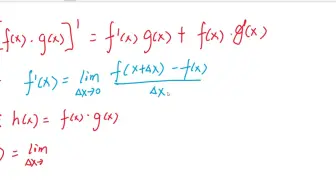 f(x) · g(x)]' = f'(x) g(x) + f(x) · g'(x)
f'(x) = lim Δx→0 f(x+Δx) - f(x) / Δx
h(x) = f(x) · g(x)
) = lim Δx→